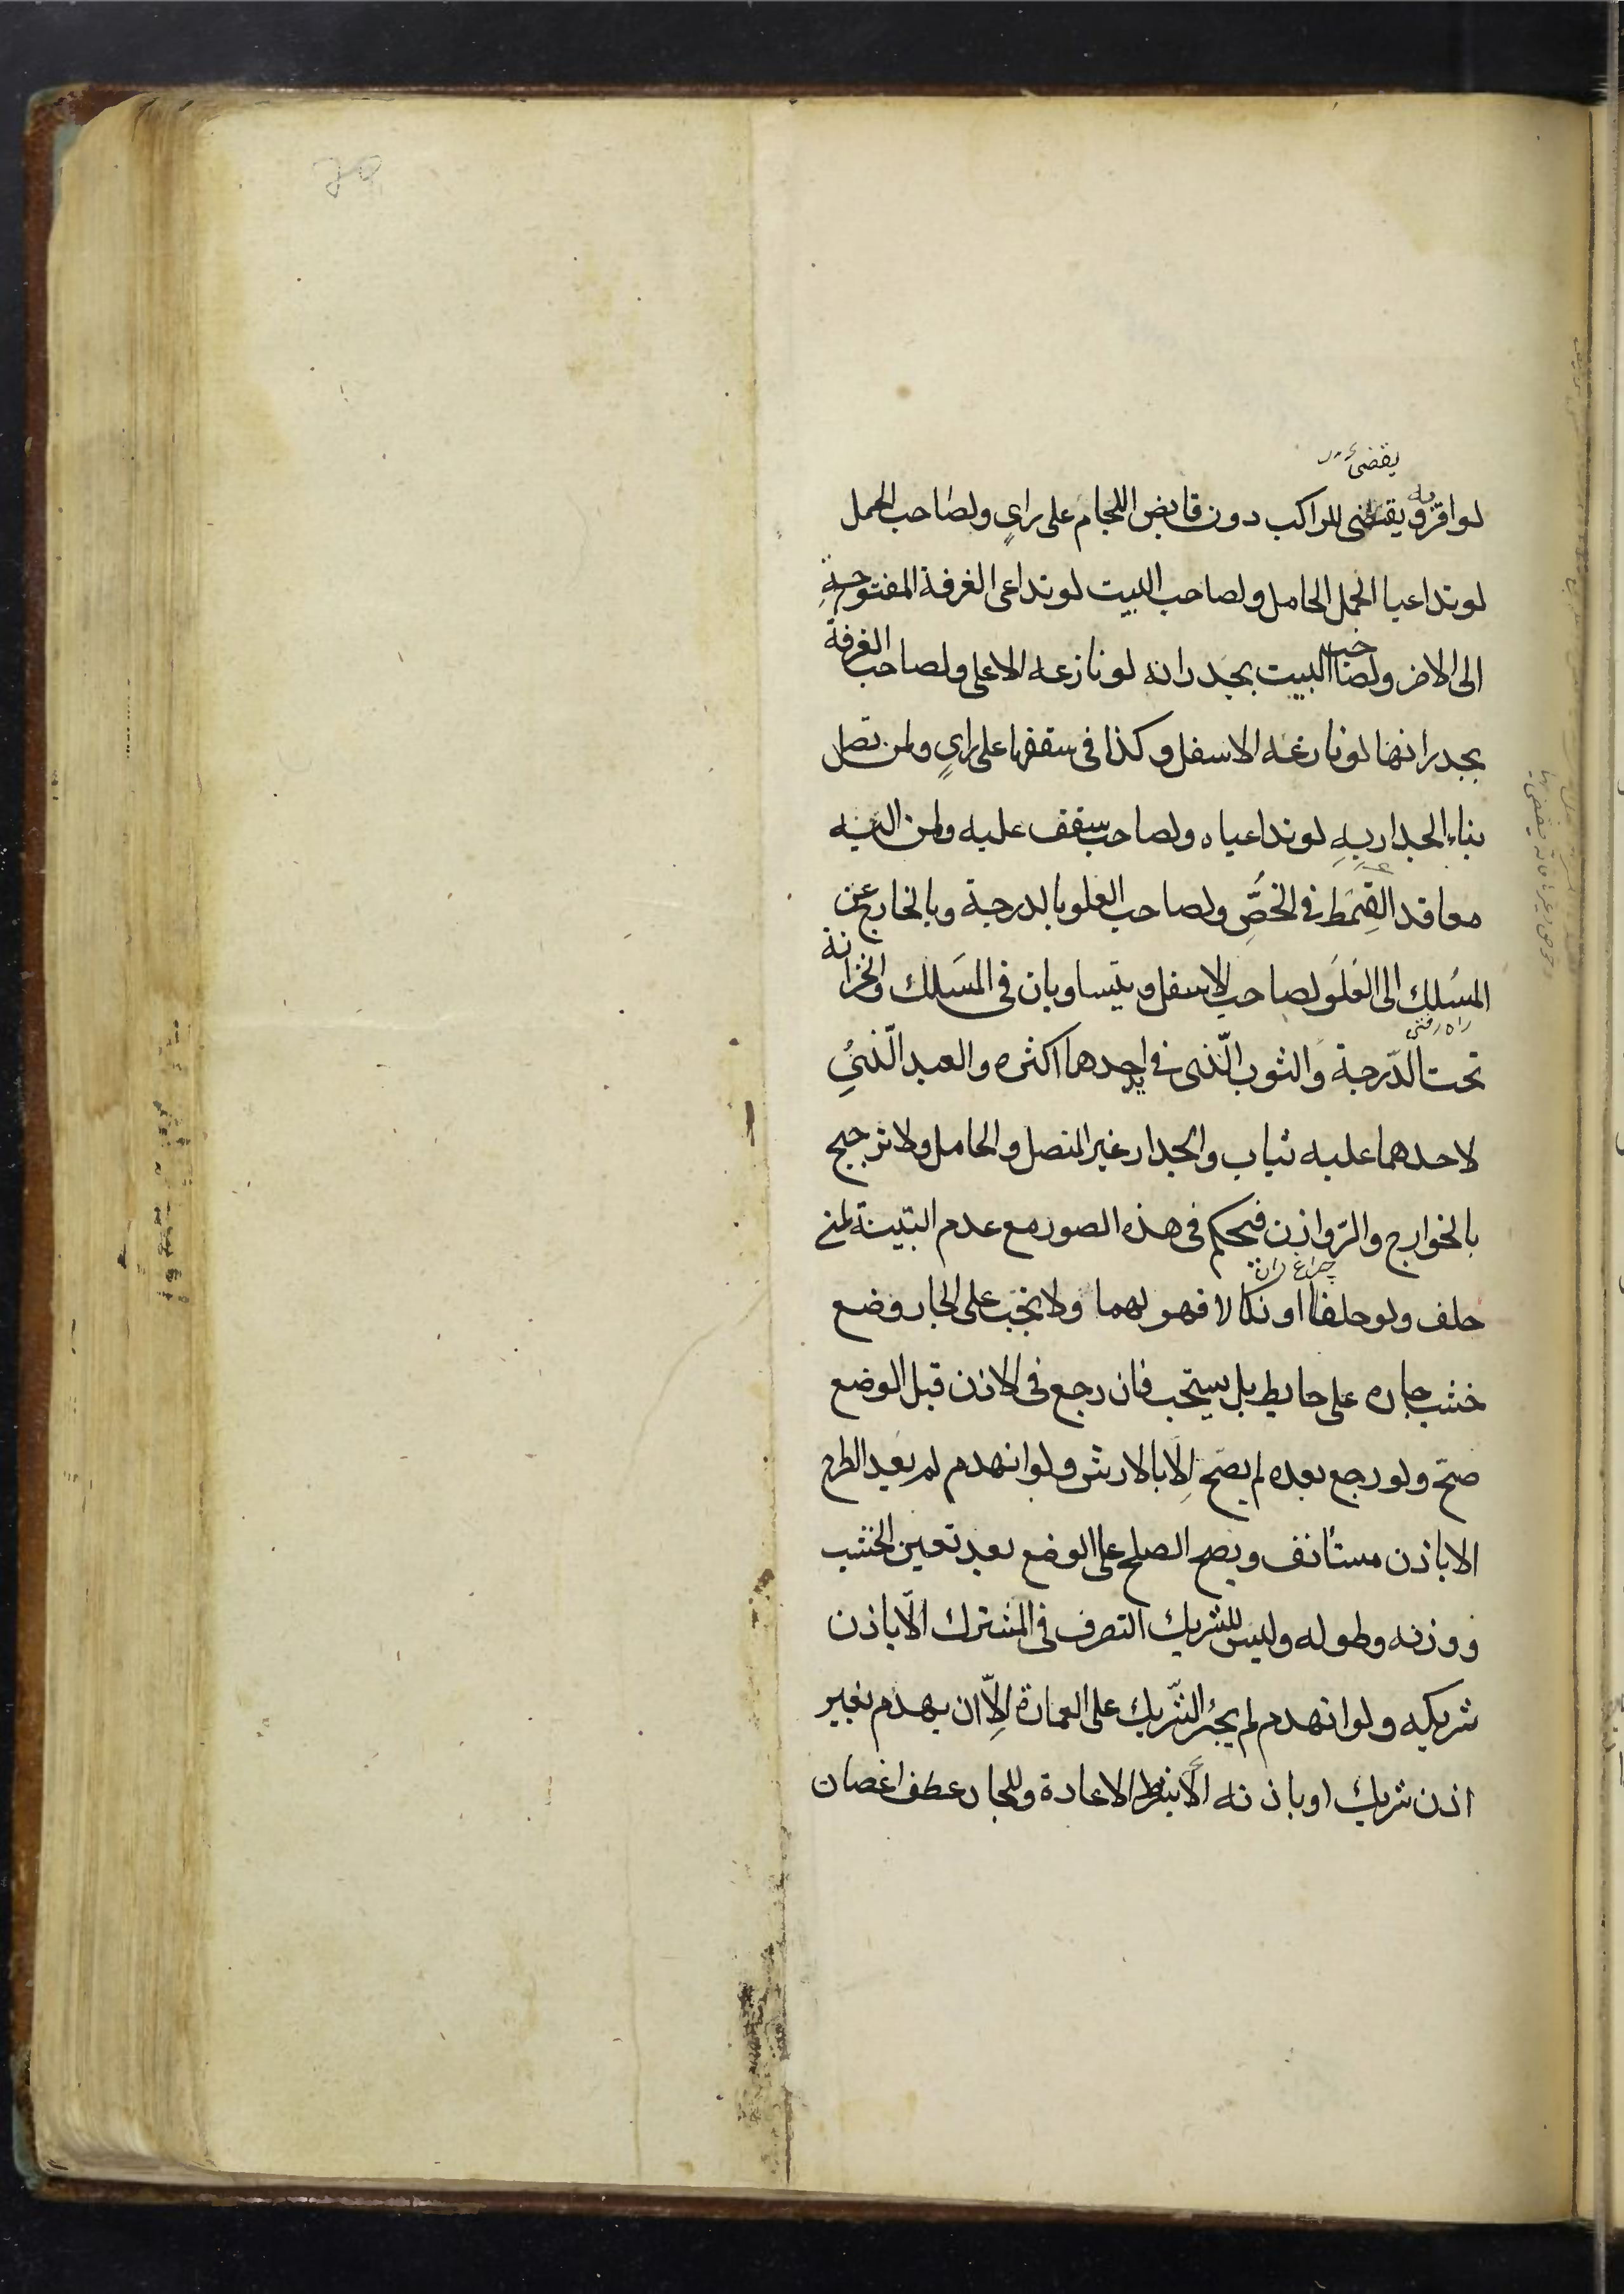 يقضى
لو اقر به و يقتضى للراكب دون قابض اللجام على رايٍ ولصاحب الحمل
لو تداعيا الجمل الحامل ولصاحب البيت لو تداعى الغرفة المفتوحةِ
الى الاخر ولصاحب البيت بجدرانه لو نازعه الاعلى ولصاحب الغرفة
بجدرانها لو نازعه الاسفل و كذا فى سقفها على رايٍ ولمن تصل
بناء الجدار بهِ لو تداعياه ولصاحب سقف عليه ولمن اليه
معاقد القِمَط فى الخُصِّ ولصاحب العلو بالدرجة وبالخارج عن
المسُلك الى العَلَو لصاحب الاسفل و يتساويان فى المَسلك والخزانة
راه رفتن
تحت الدّرجة وَالثوب الّذى فى يد احدهما اكثره والعبد الّذى
لاحدهما عليه ثياب والجدار غير المتصل والحامل ولا ترجيح
بالخوارج والرّوازن فيحكم فى هذه الصور مع عدم البيّنة لمن
چراغ دان
حلف ولو حلفا او نكلا فهو لهما ولا يجَب على الجار وضع
خشب جاره على حايط بل يستحّب فان رجع فى الاذن قبل الوضع
صحّ ولو رجع بعده لم يصَح اِلّا بالارش ولو انهدم لم يعَد الطرح
الا باذن مستانف ويصح الصلح على الوضع بعد تعيين الخشب
ووزنه وطوله وليس للشريك التصرف فى المشترك الّا باذن
شريكه ولو انهدم لم يجبُر الشّريك على العمارة اِلّا ان يهدم بغير
اذن شريك او باذنه الّا بشرط الاعادة وللجار عطف اغصان